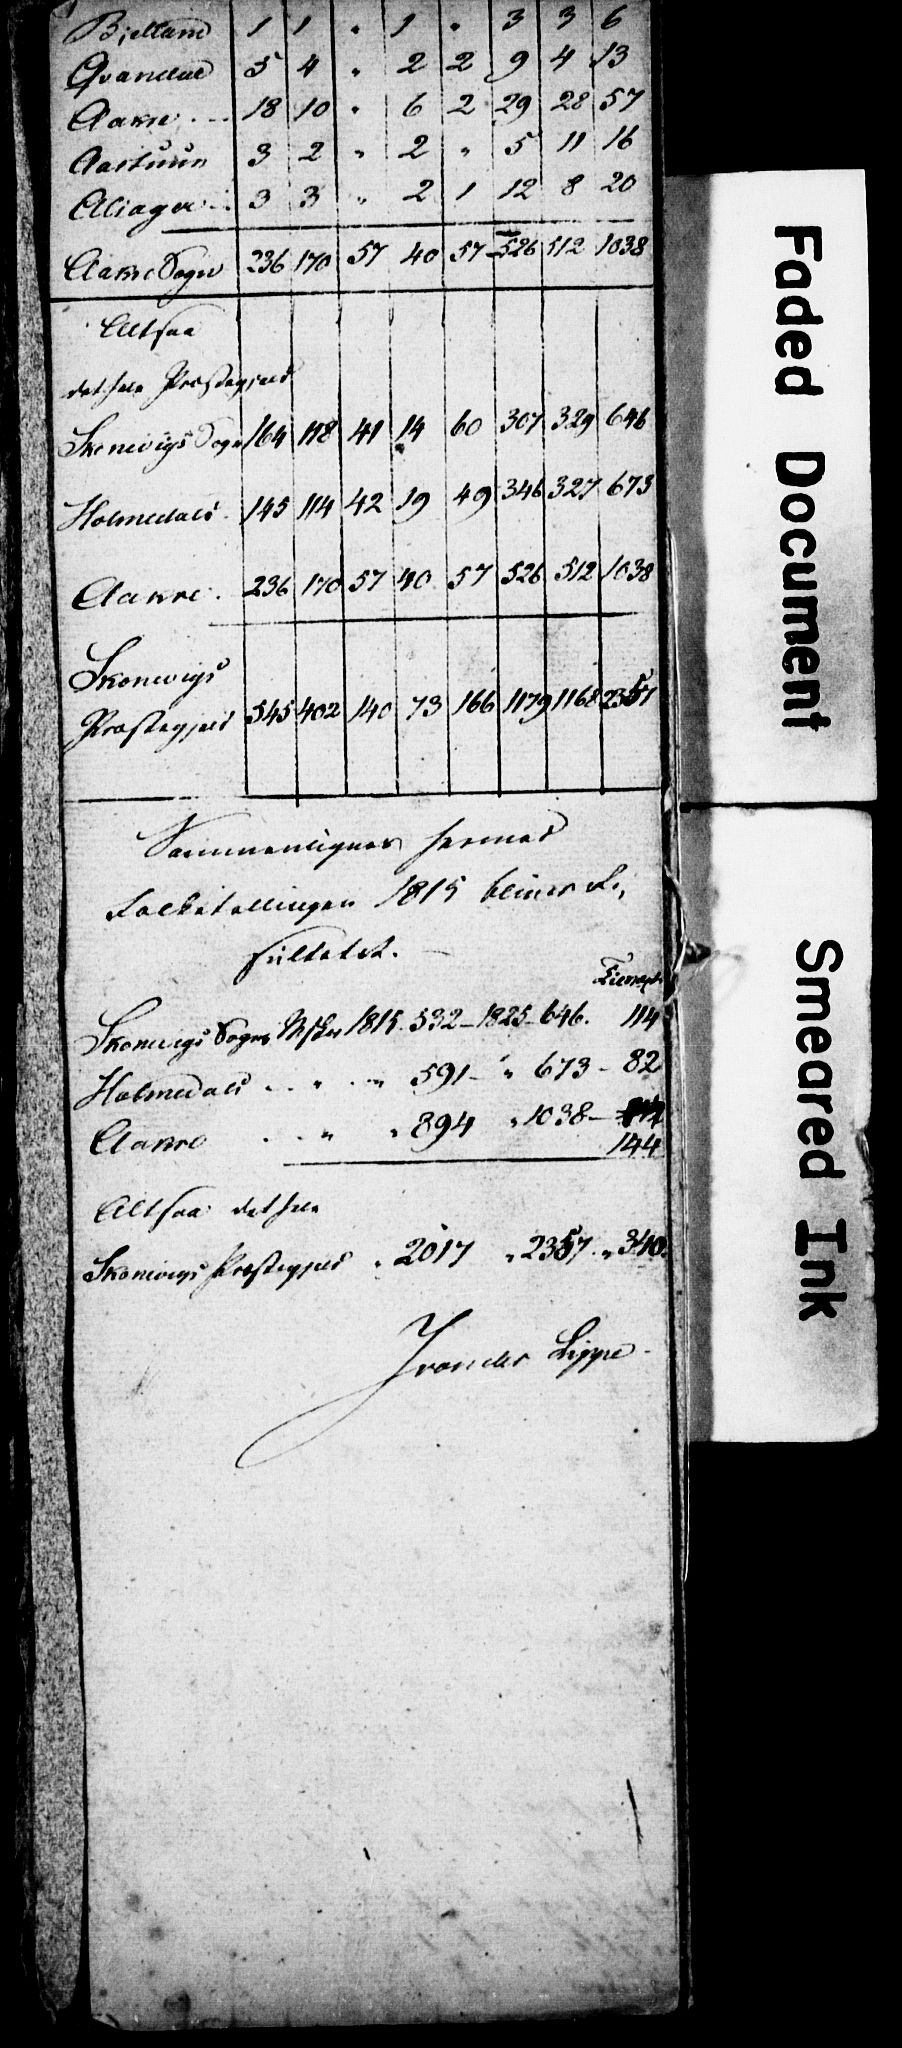 Bjelland 1 1 " 1 " 3 3 6
Qvandal 5 4 " 2 2 9 4 13
Aakre 18 10 " 6 2 29 28 57
3 2 " 2 " 5 11 16
3 3 " 2 1 12 8 20
Aakre Sogn 236 170 57 40 57 526 512 1038
Altsaa
det hele Præstegjeld
Skonevigs Sogn 164 118 41 14 60 307 329 646
Holmedals 145 114 42 19 49 346 327 673
Aakre 236 170 57 40 57 526 512 1038
Skonevigs
Præstegjeld 545 402 140 73 166 1179 1168 2357
Sammenlignes hermed
Folketællingen 1815 bliver Re-
sultatet.
Skonevigs Sogns Msker 1815 532 - 1825 - 646. 114
Holmedals " " 591 - " 673 - 82
Aakre " " 894 " 1038 -
144
Altsaa det hele
Skonevigs Præstegjeld " 2017 " 2357 " 340.
Lippe
Faded Document
Smeared Ink